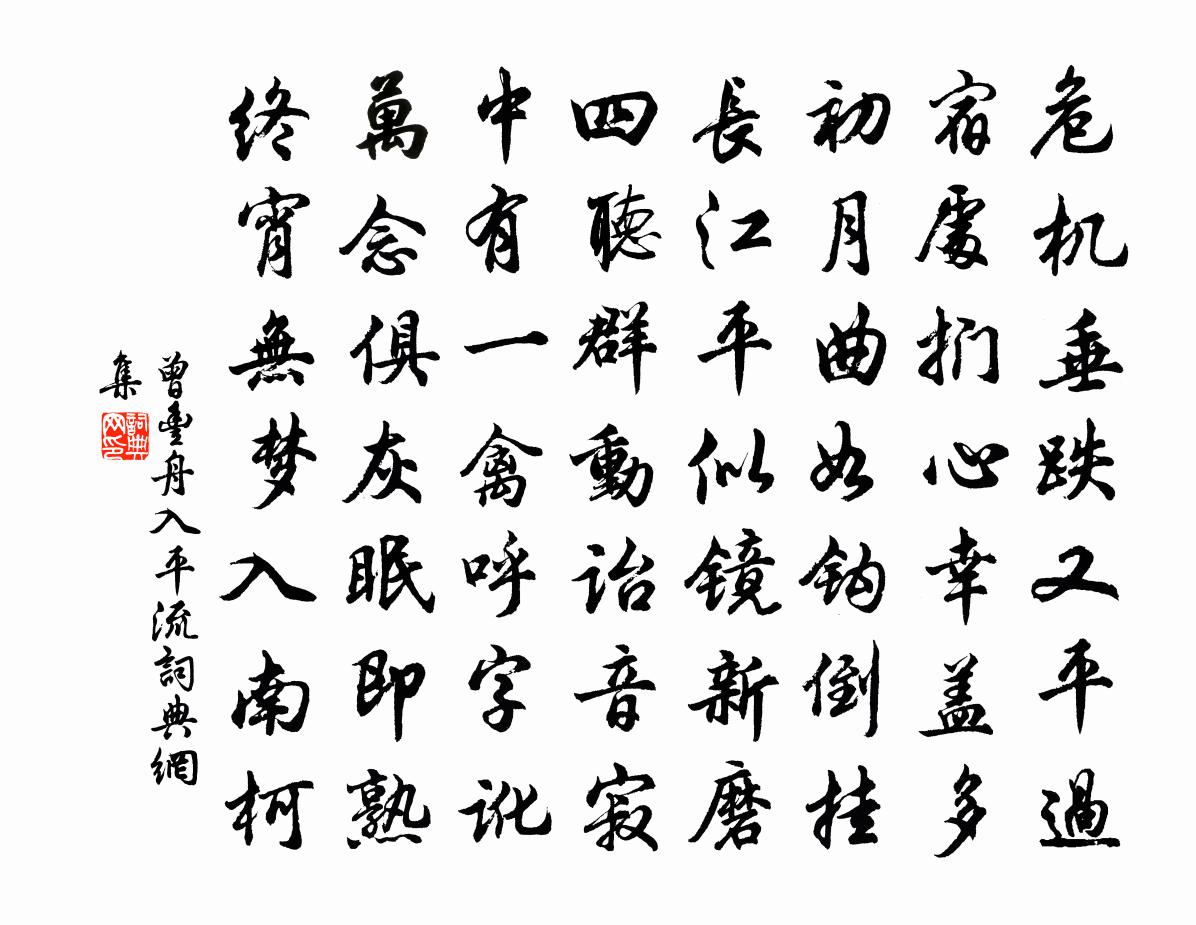 危机垂跌又平過
宿處捫心幸盖多
初月曲如鈎倒挂
長江平似镜新磨
四聽群動詒音寂
中有一禽呼字訛
萬念俱灰眠即熟
终宵無梦入南柯
曾豊舟入平流詞典網
集
詞典
网印